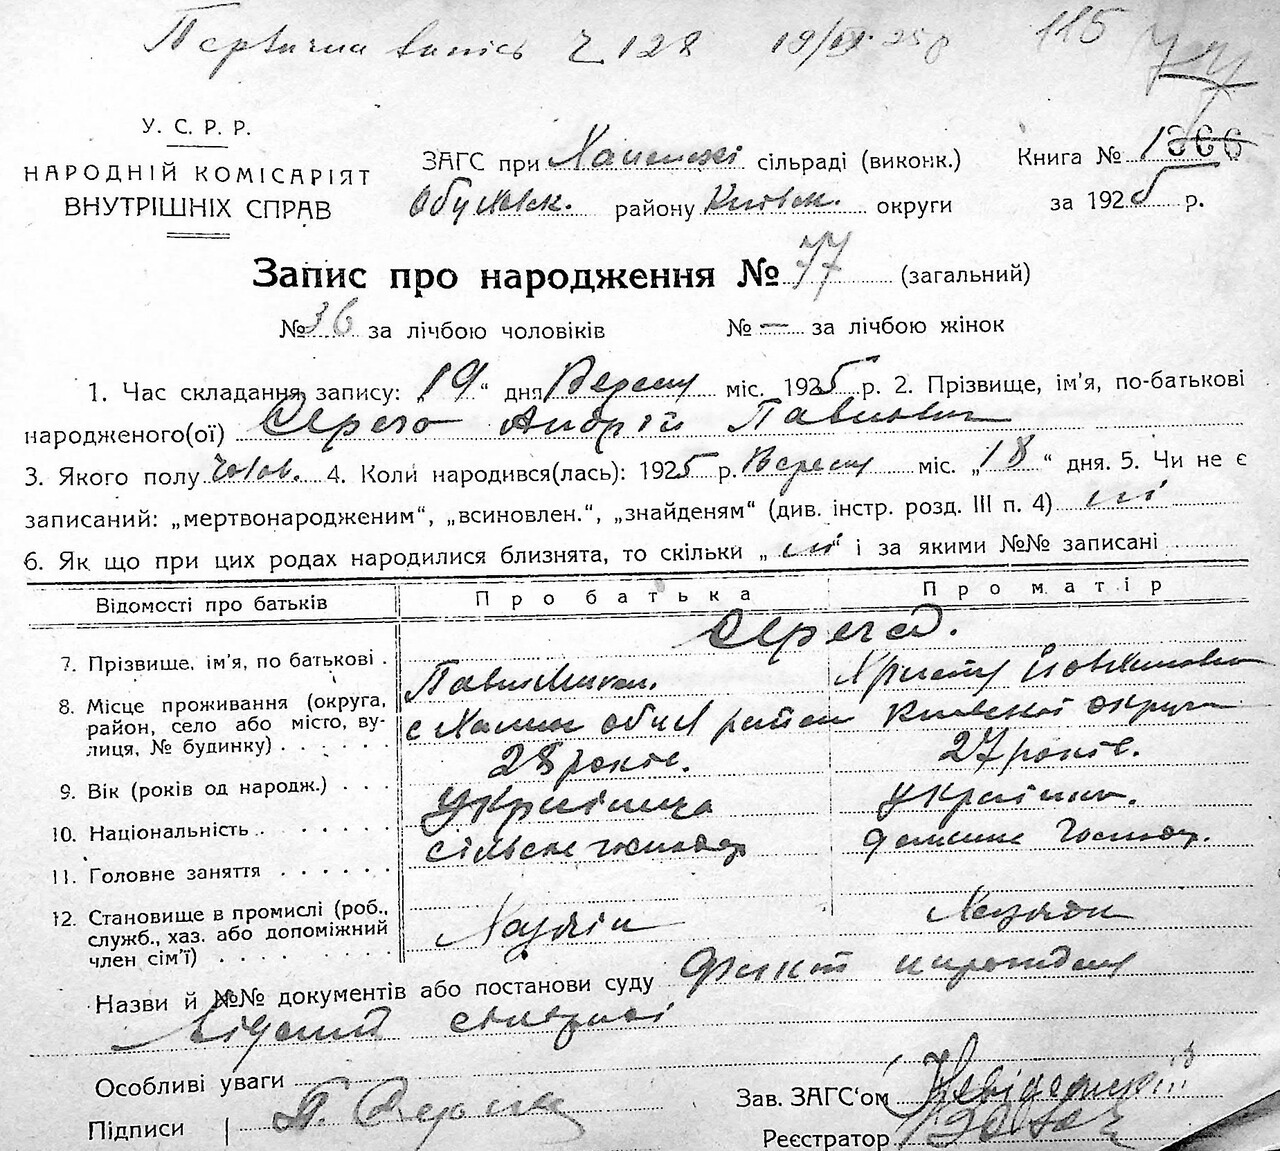 Первична запись Ч 128 19/IX 25 р 115
У. С. Р. Р.
НАРОДНІЙ КОМІСАРІЯТ
ВНУТРІШНІХ СПРАВ
ЗАГС при сільраді (виконк.) Книга №
району Київськ. округи за 1925 р.
Запис про народження № 77 (загальний)
№ 36 за лічбою чоловіків № — за лічбою жінок
1. Час складання запису: „19“ дня Вересня міс. 1925 р. 2. Прізвище, ім'я, по-батькові
народженого(ої) Андрій Павлович
3. Якого полу чолов. 4. Коли народився(лась): 1925 р. Вересня міс. „18“ дня. 5. Чи не є
записаний: „мертвонародженим“, „всиновлен.“, „знайденям“ (див. інстр. розд. III п. 4) ні
6. Як що при цих родах народилися близнята, то скільки „ні“ і за якими №№ записані
Відомості про батьків Про батька Про матір
7. Прізвище, ім'я, по батькові .
8. Місце проживання (округа, район, село або місто, вулиця, № будинку) . . . . . район Київської округи
28 років. 27 років.
9. Вік (років од народж.) . . .
українець українка.
10. Національність . . . . . .
сільське господар домашнє господар.
11. Головне заняття . . . . . .
12. Становище в промислі (роб.,
служб., хаз. або допоміжний
член сім'ї) . . . . . . . . . Хазяїн Хазяйка
Назви й №№ документів або постанови суду факт народження
відомий сільраді
Особливі уваги
Підписи П.
Зав. ЗАГС'ом
Реєстратор